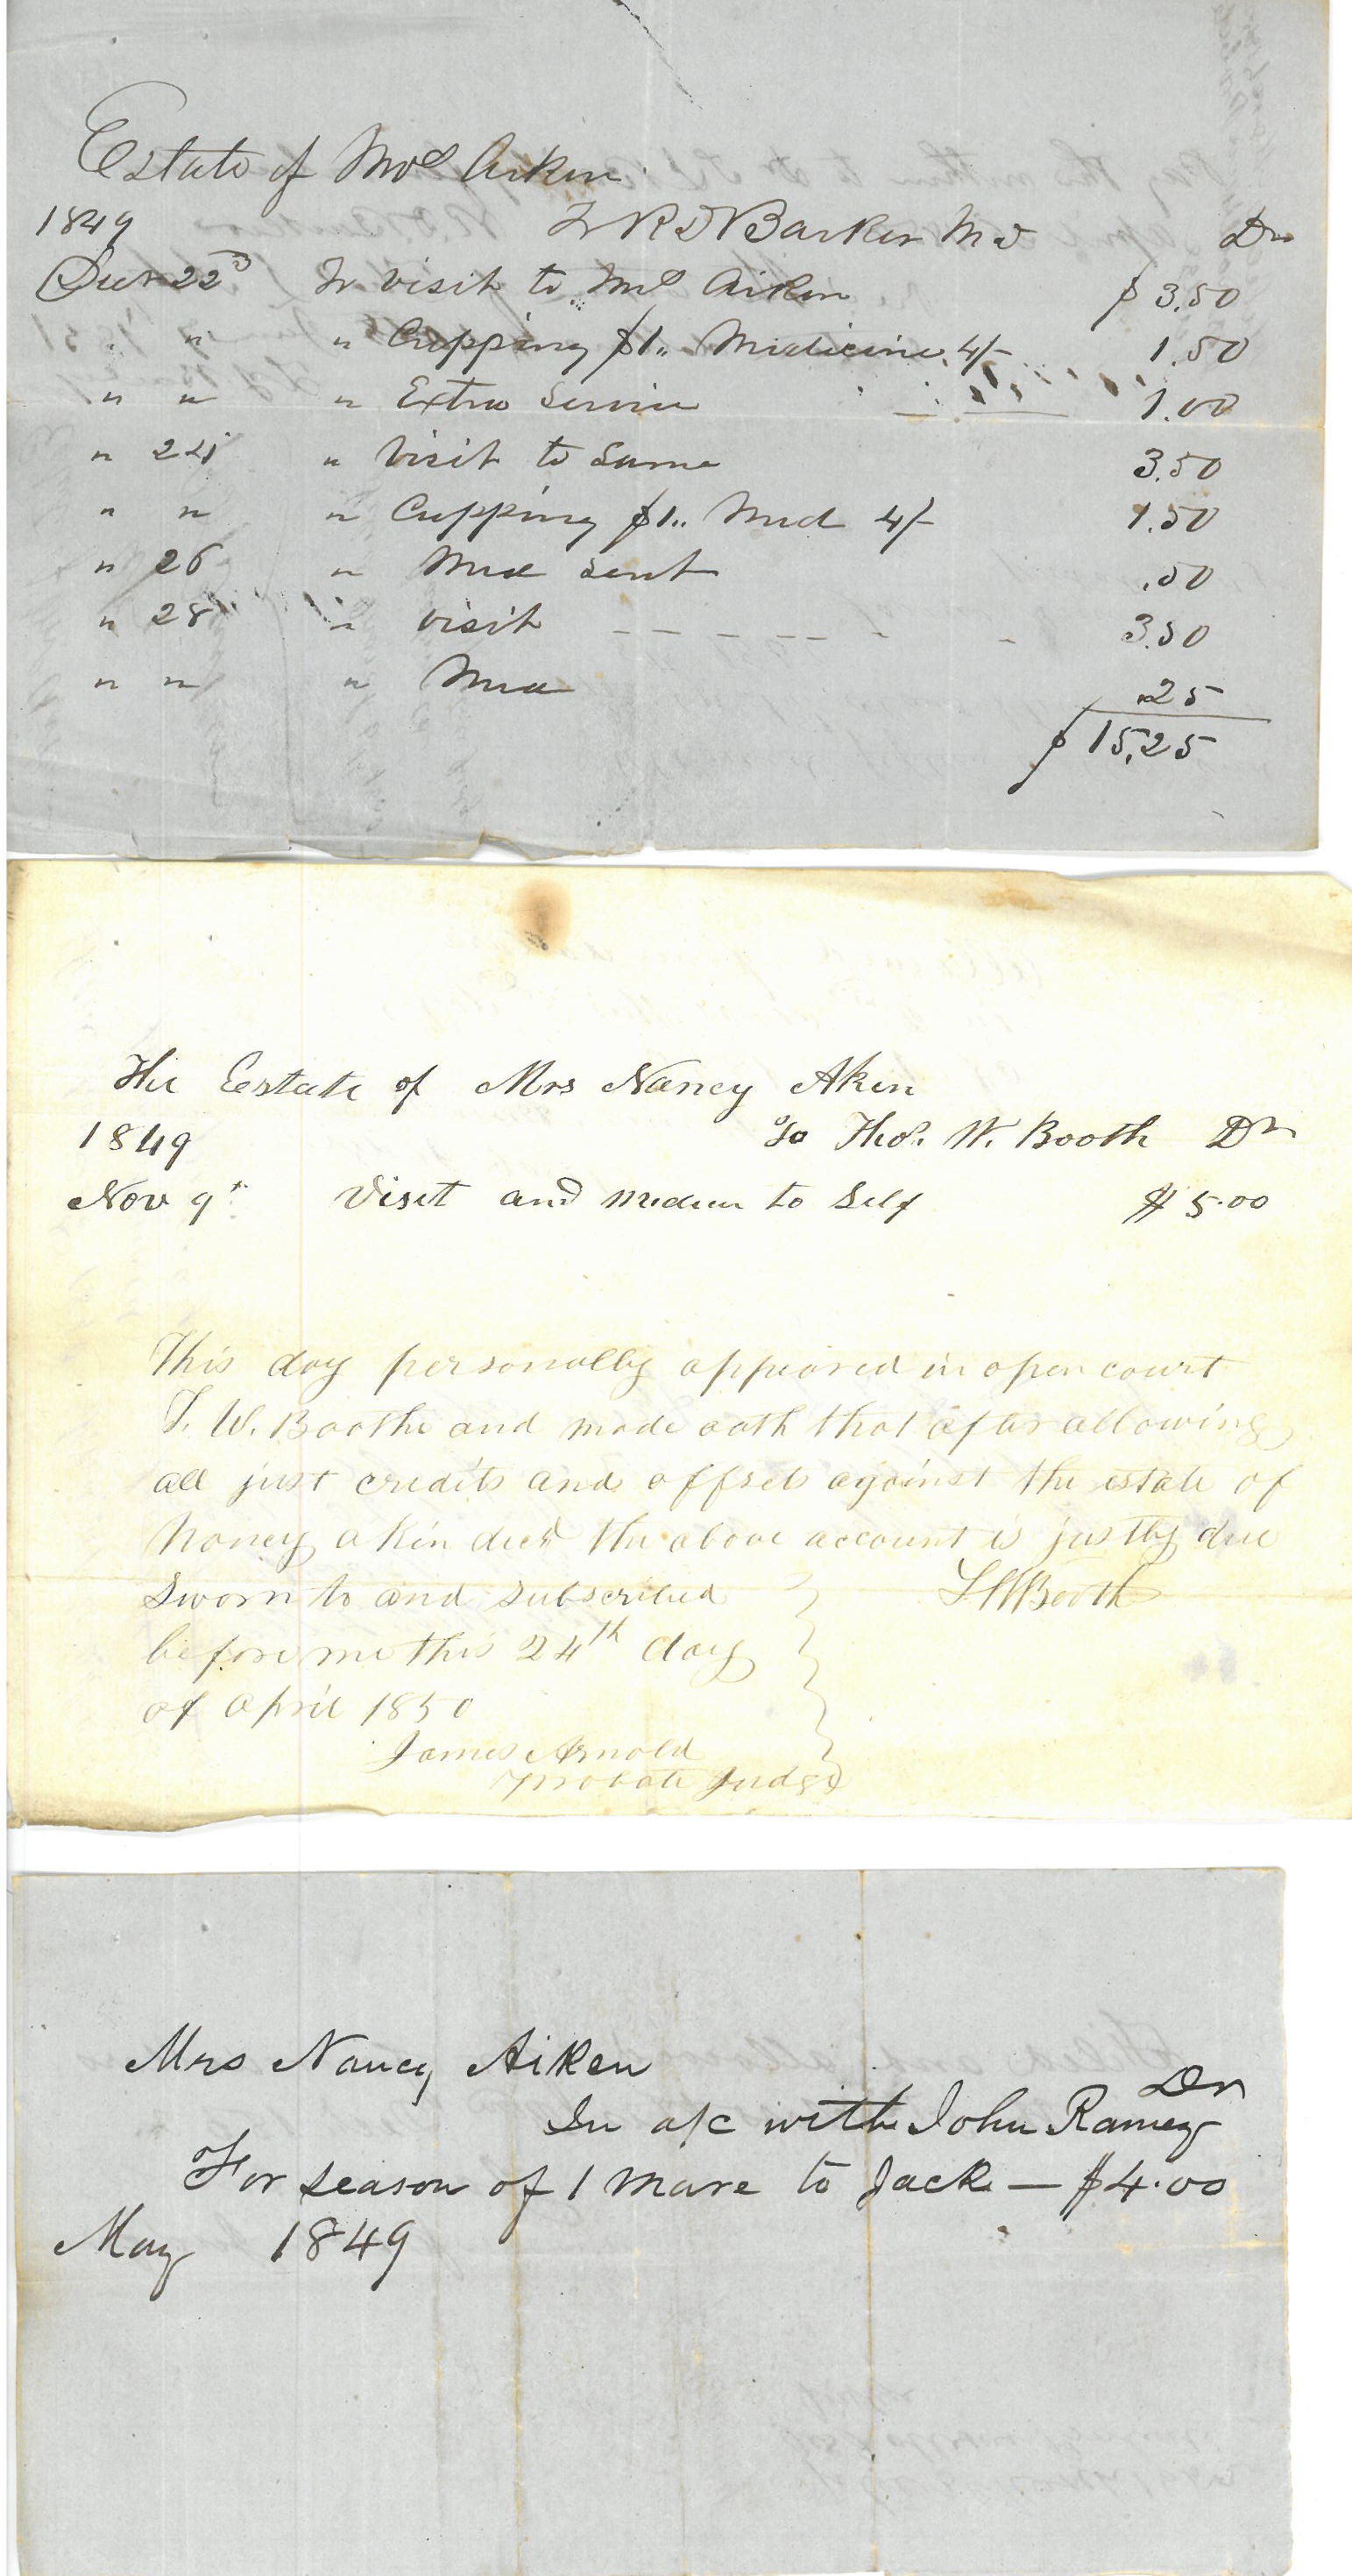 Estate of Mrs Aiken
1849 To R D Barker M D Dr
Oct 22d To visit to Mrs Aiken $ 3.50
" " " Cupping $1.. Medicine 4/- 1.50
" " " Extra Service 1.00
" 24 " Visit to Same 3.50
" " " Cupping $1.. Med 4/- 1.50
" 26 " Med sent .50
" 28 " visit 3.50
" " " Med .25
$ 15.25
The Estate of Mrs Nancy Aken
1849 To Thos. W. Booth Dr
Nov 9th Visit and Medicin to Self $ 5.00
This day personally appeared in open court
T. W. Boothe and made oath that after allowing
all just credits and offsets against the estate of
Nancy Akin decd the above account is justly due
Sworn to and subscribed TWBooth
before me this 24th day
of April 1850
James Arnold
Probate Judge
Mrs Nancy Aiken
Dr
In a/c with John Ramey
For season of 1 Mare to Jack — $4.00
May 1849